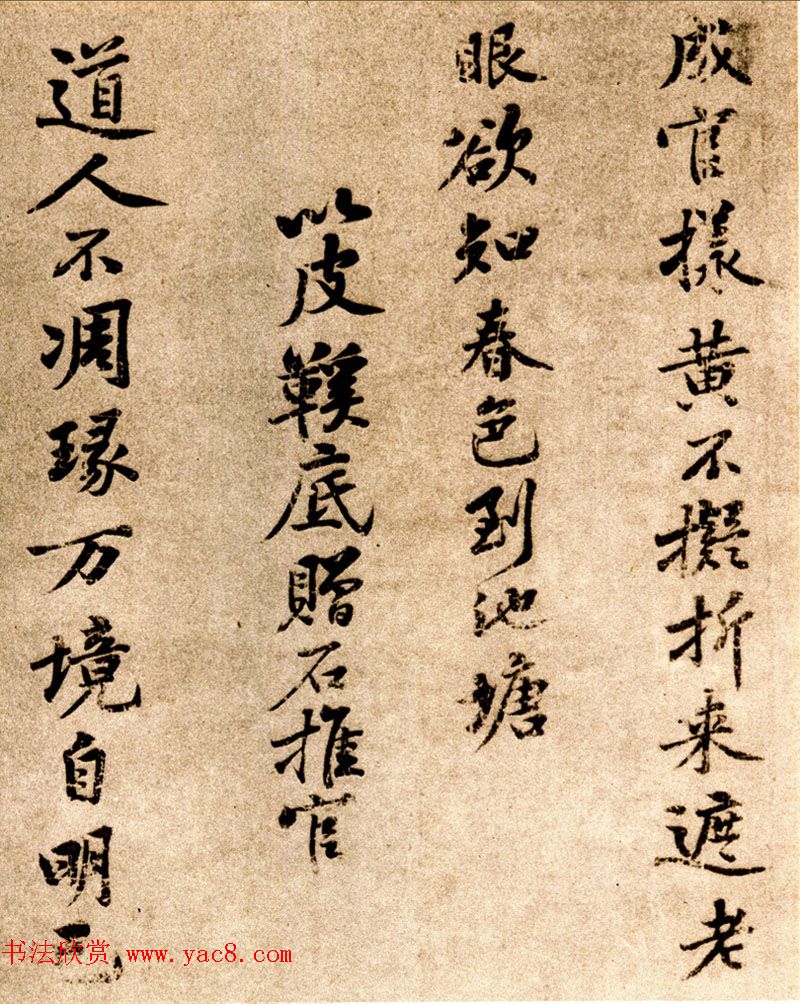 成官樣黄不擬折来遮老
眼欲知春色到池塘
以皮鞵底贈石推官
道人不凋琢万境自明己
书法欣赏 www.yac8.com